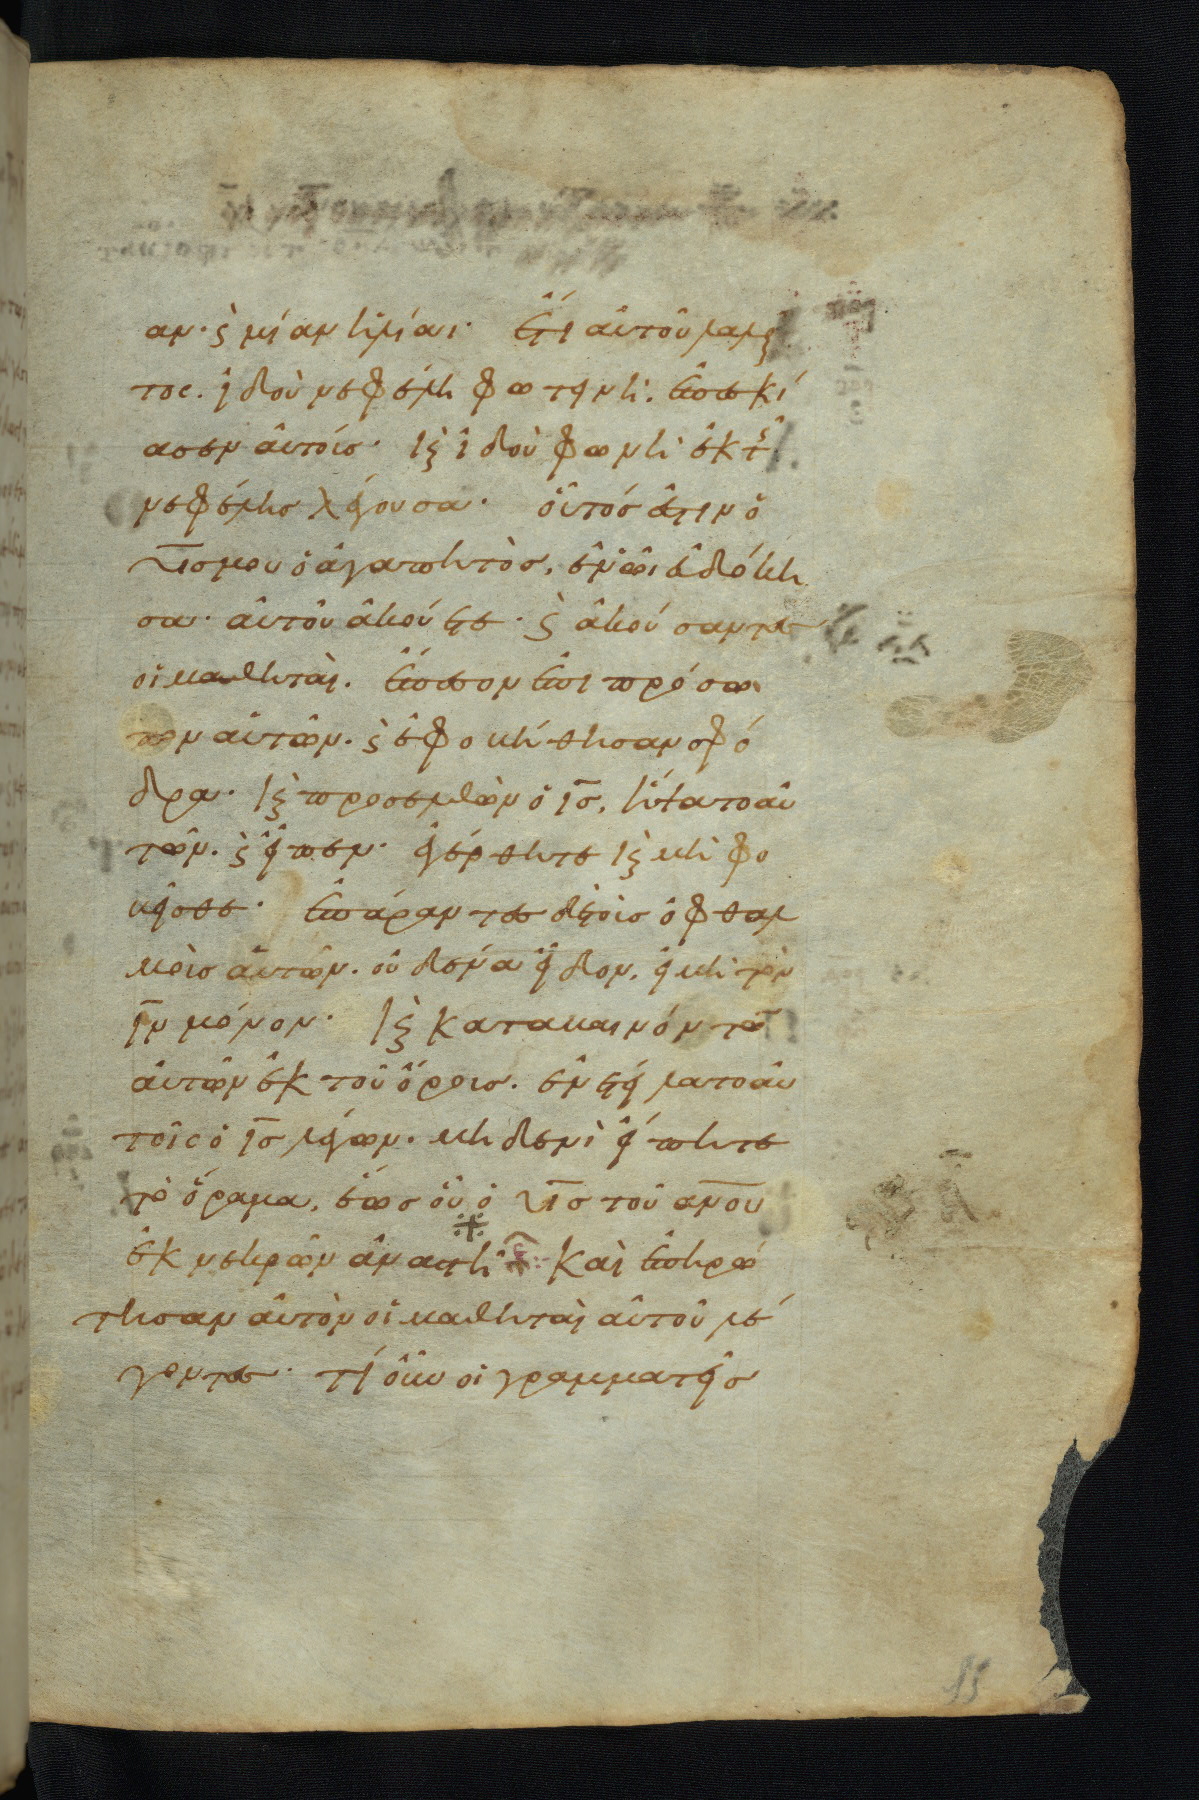 αν· ϛ μίαν ἡλίαι· ἔτι αὐτοῦ λαλοῦν
τος. ἰδοὺ νεφέλη φωτεινὴ. ἐπεσκί
ασεν αὐτοίσ· κὶ ἰδοὺ φωνὴ ἐκ τῆς
νεφέλησ λέγουσα· οὗτόσ ἐστιν ὁ
υἱ̅σ μου ὁ ἀγαπητὸσ, ἐν ὧι εὐδόκη
σα· αὐτοῦ ἀκούετε· ϛ ἀκούσαντεσ
οἱ μαθηταὶ. ἔπεσον ἐπι πρόσω
πον αὐτῶν. ϛ ἐφοβήθησαν σφό
δρα· κὶ προσελθὼν ὁ ι̅σ, ἥψατο αὐ
τῶν. ϛ εἶπεν· ἐγέρθητε κὶ μὴ φο
βεῖσθε· ἐπάραντεσ δὲ τοὶσ ὀφθαλ
μοὶσ αὐτῶν. οὐδένα εἶδον, εἰ μὴ τὸν
ι̅ν μόνον· κὶ καταβαινόντων
αὐτῶν ἐκ τοῦ ὄρουσ. ἐνετείλατο αὐ
τοῖς ὁ ι̅σ λέγων. μηδενὶ εἴπητε
τὸ ὅραμα, ἕωσ οὗ ὁ υ̅ι̅σ τοῦ α̅ν̅ου
ἐκ νεκρῶν ἀναστῆ καὶ ἐπηρώ
τησαν αὐτὸν οἱ μαθηταὶ αὐτοῦ λέ
γοντεσ· τί οὖν οἱ γραμματεῖσ